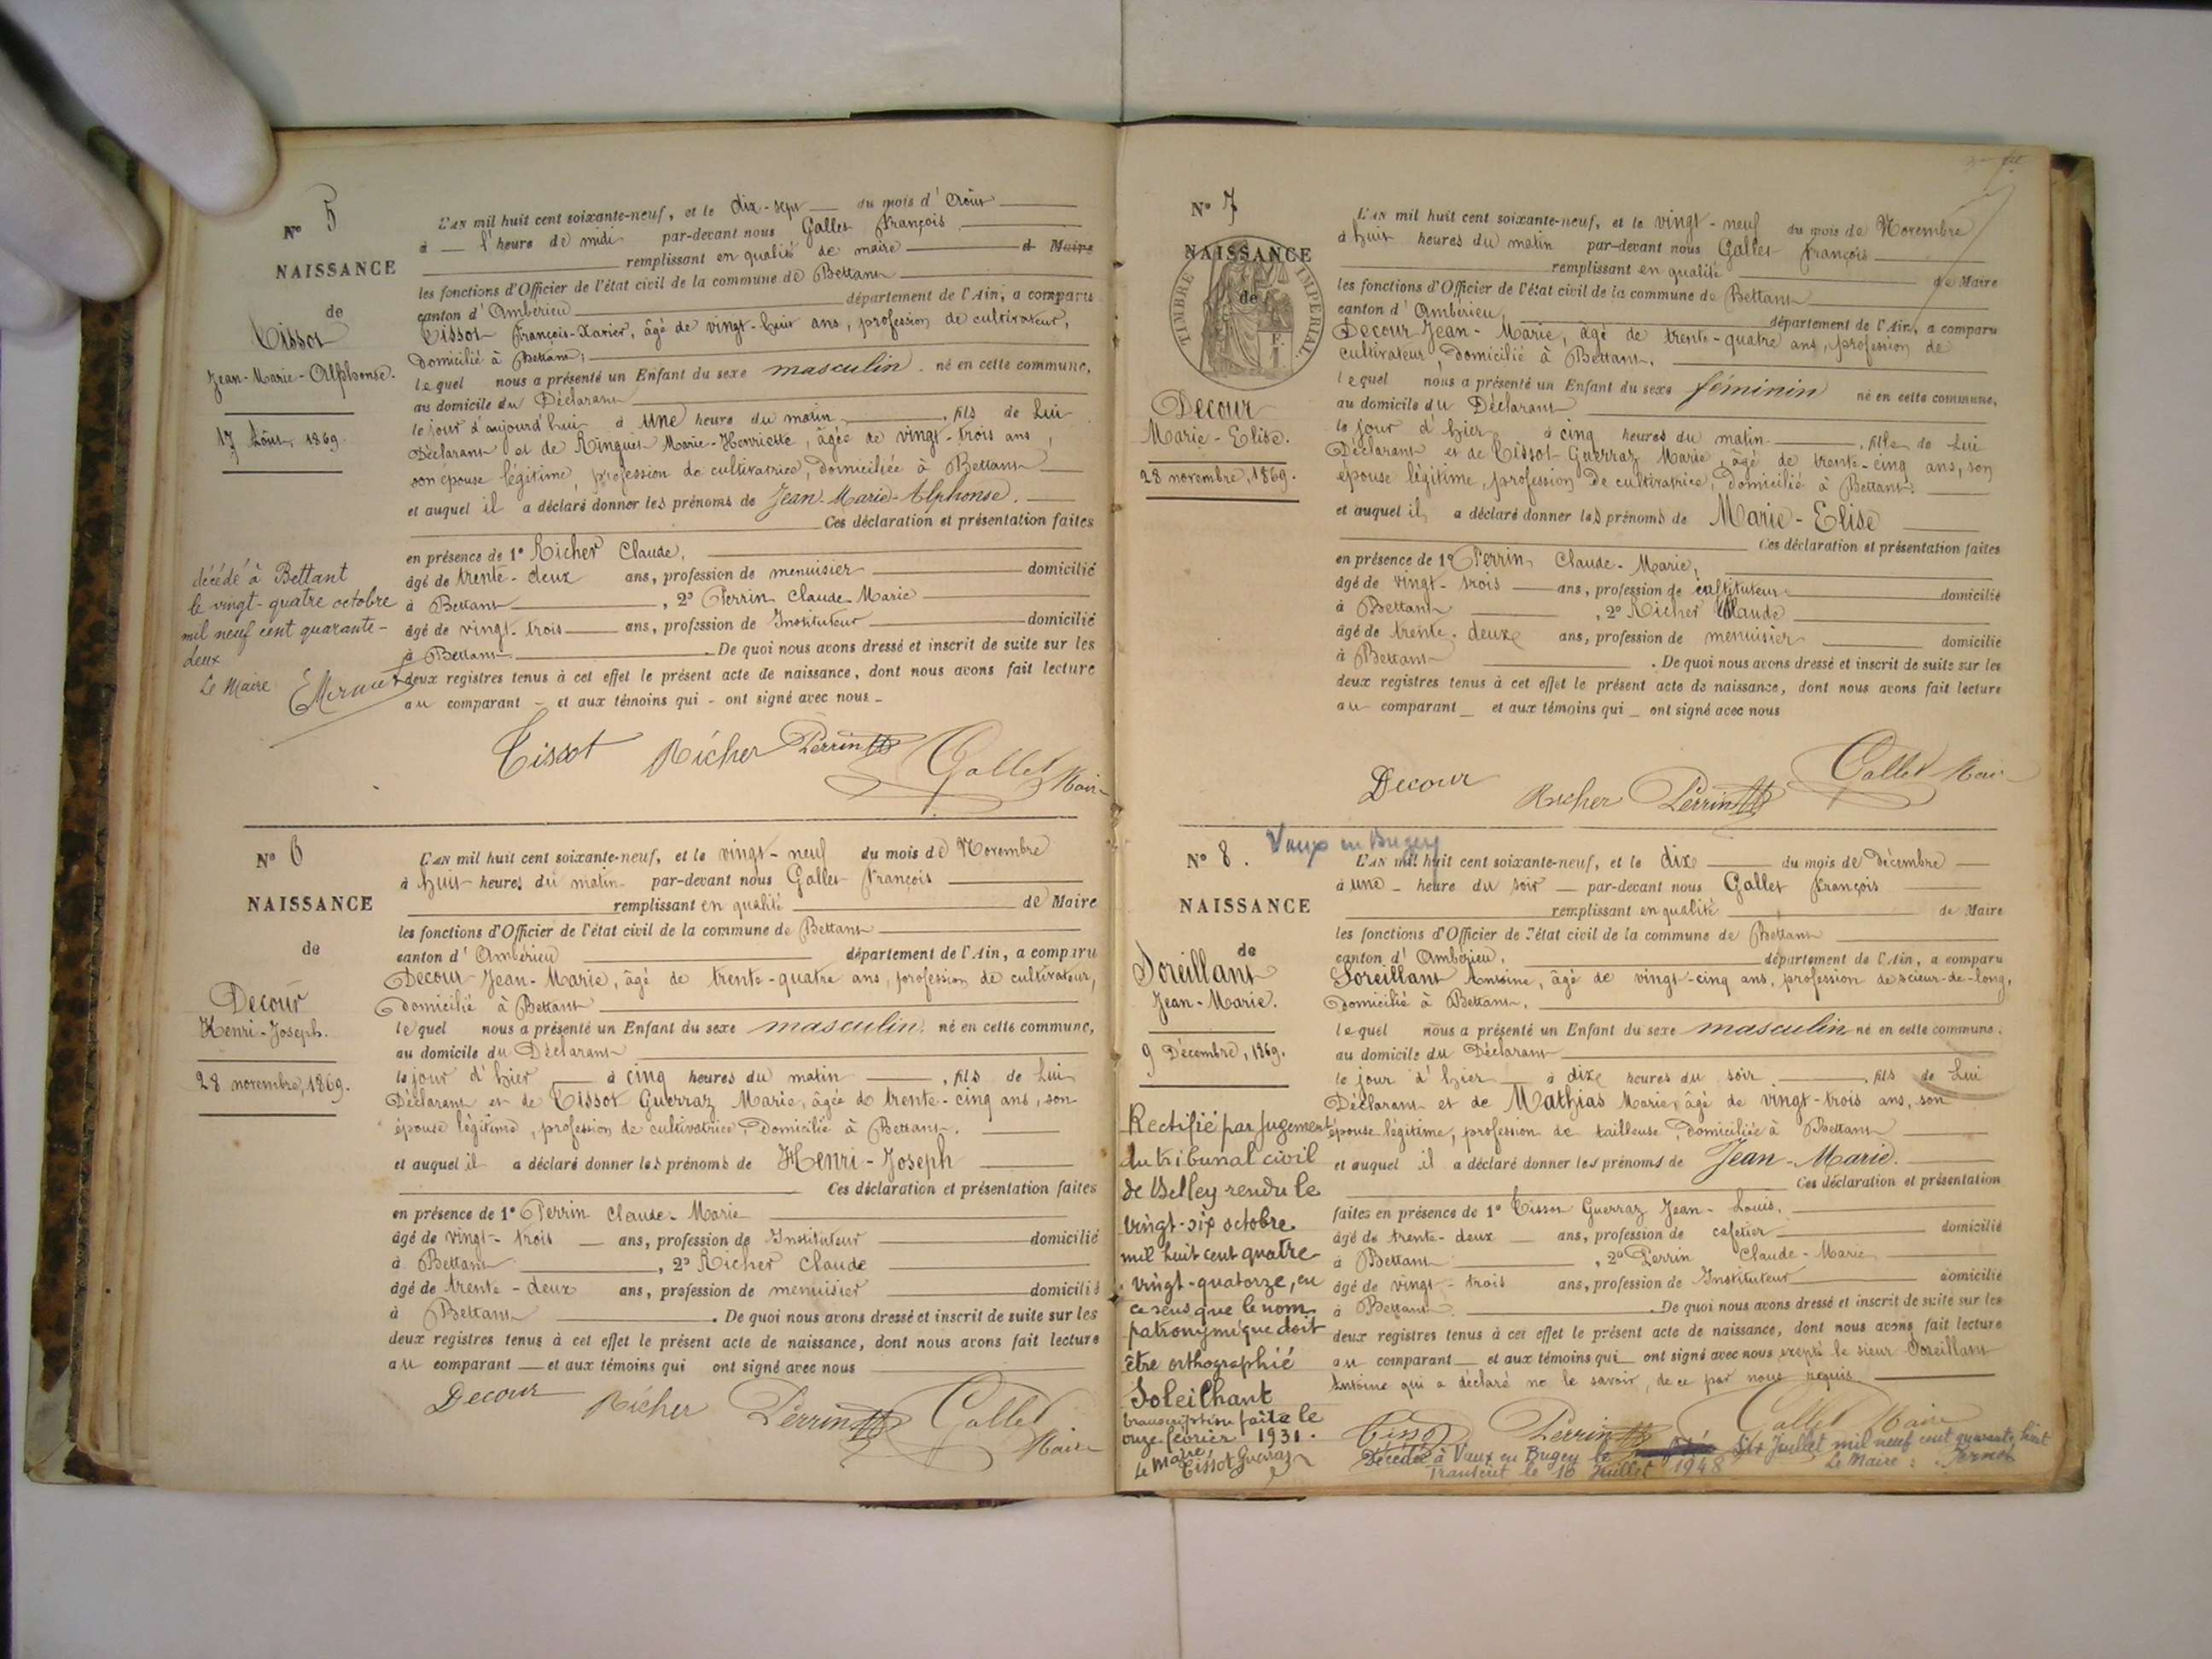 N° 5
NAISSANCE
de
Tissot
Jean-Marie-Alphonse.
17 Août, 1869.
décédé à Bettant
le vingt-quatre octobre
mil neuf cent quarante-
deux
Le Maire
L'AN mil huit cent soixante-neuf, et le dix-sept du mois d'Août
à l'heure de midi par-devant nous Gallet François
remplissant en qualité de maire d Maire
les fonctions d'Officier de l'état civil de la commune de Bettant
canton d'Ambérieu département de l'Ain, a comparu
Tissot François-Xavier, âgé de vingt-huit ans, profession de cultivateur,
Domicilié à Bettant,
lequel nous a présenté un Enfant du sexe masculin. né en cette commune,
au domicile du Déclarant
le jour d'aujourd'hui à une heure du matin, fils de Lui
Déclarant et de Ringuet Marie-Henriette, âgée de vingt-trois ans,
son épouse légitime, profession de cultivatrice, domiciliée à Bettant
et auquel il a déclaré donner les prénoms de Jean-Marie-Alphonse.
Ces déclaration et présentation faites
en présence de 1° Richer Claude,
âgé de trente-deux ans, profession de menuisier domicilié
à Bettant, 2° Perrin Claude-Marie
âgé de vingt-trois ans, profession de Instituteur domicilié
à Bettant. De quoi nous avons dressé et inscrit de suite sur les
deux registres tenus à cet effet le présent acte de naissance, dont nous avons fait lecture
au comparant - et aux témoins qui - ont signé avec nous -
Tissot Richer Perrin Gallet Maire
N° 6
NAISSANCE
de
Decour
Henri-Joseph.
28 novembre, 1869.
L'AN mil huit cent soixante-neuf, et le vingt-neuf du mois de Novembre
à huit heures du matin par-devant nous Gallet François
remplissant en qualité de Maire
les fonctions d'Officier de l'état civil de la commune de Bettant
canton d'Ambérieu département de l'Ain, a comparu
Decour Jean-Marie, âgé de trente-quatre ans, profession de cultivateur,
Domicilié à Bettant
lequel nous a présenté un Enfant du sexe masculin, né en cette commune,
au domicile du Déclarant
le jour d'hier à cinq heures du matin, fils de Lui
Déclarant et de Tissot Guerraz Marie, âgée de trente-cinq ans, son
épouse légitime, profession de cultivatrice, Domicilié à Bettant.
et auquel il a déclaré donner les prénoms de Henri-Joseph
Ces déclaration et présentation faites
en présence de 1° Perrin Claude-Marie
âgé de vingt-trois ans, profession de Instituteur domicilié
à Bettant, 2° Richer Claude
âgé de trente-deux ans, profession de menuisier domicilié
à Bettant. De quoi nous avons dressé et inscrit de suite sur les
deux registres tenus à cet effet le présent acte de naissance, dont nous avons fait lecture
au comparant et aux témoins qui ont signé avec nous
Decour Richer Perrin Gallet Maire
N° 7
NAISSANCE
TIMBRE IMPERIAL.
de
Decour
Marie-Elise.
28 novembre, 1869.
L'AN mil huit cent soixante-neuf, et le vingt-neuf du mois de Novembre
à huit heures du matin par-devant nous Gallet François
remplissant en qualité de Maire
les fonctions d'Officier de l'état civil de la commune de Bettant
canton d'Ambérieu, département de l'Ain, a comparu
Decour Jean-Marie, âgé de trente-quatre ans, profession de
cultivateur, Domicilié à Bettant.
lequel nous a présenté un Enfant du sexe féminin né en cette commune,
au domicile du Déclarant
le jour d'hier à cinq heures du matin, fille de Lui
Déclarant et de Tissot Guerraz Marie, âgé de trente-cinq ans, son
épouse légitime, profession de cultivatrice, Domicilié à Bettant.
et auquel il a déclaré donner les prénoms de Marie-Elise
Ces déclaration et présentation faites
en présence de 1° Perrin Claude-Marie,
âgé de vingt-trois ans, profession de instituteur domicilié
à Bettant, 2° Richer Claude
âgé de trente-deux ans, profession de menuisier domicilié
à Bettant. De quoi nous avons dressé et inscrit de suite sur les
deux registres tenus à cet effet le présent acte de naissance, dont nous avons fait lecture
au comparant et aux témoins qui ont signé avec nous
Decour Richer Perrin Gallet Maire
N° 8. Vaux en Bugey
NAISSANCE
de
Soreillant
Jean-Marie.
9 Décembre, 1869.
Rectifié par jugement
du tribunal civil
de Belley rendu le
vingt-six octobre
mil huit cent quatre-
vingt-quatorze, en
ce sens que le nom
patronymique doit
être orthographié
Soleilhant
transcription faite le
onze février 1931.
Le Maire
Tissot Guerraz
L'AN mil huit cent soixante-neuf, et le dix du mois de Décembre
à une heure du soir par-devant nous Gallet François
remplissant en qualité de Maire
les fonctions d'Officier de l'état civil de la commune de Bettant
canton d'Ambérieu, département de l'Ain, a comparu
Soreillant Antoine, âgé de vingt-cinq ans, profession de scieur-de-long,
Domicilié à Bettant,
lequel nous a présenté un Enfant du sexe masculin né en cette commune,
au domicile du Déclarant
le jour d'hier à dix heures du soir, fils de Lui
Déclarant et de Mathias Marie, âgé de vingt-trois ans, son
épouse légitime, profession de tailleuse, Domiciliée à Bettant
et auquel il a déclaré donner les prénoms de Jean-Marie.
Ces déclaration et présentation
faites en présence de 1° Tissot Guerraz Jean-Louis,
âgé de trente-deux ans, profession de cafetier domicilié
à Bettant, 2° Perrin Claude-Marie
âgé de vingt-trois ans, profession de Instituteur domicilié
à Bettant. De quoi nous avons dressé et inscrit de suite sur les
deux registres tenus à cet effet le présent acte de naissance, dont nous avons fait lecture
au comparant et aux témoins qui ont signé avec nous exepté le sieur Soreillant
Antoine qui a déclaré ne le savoir, de ce par nous requis
Tissot Perrin Gallet Maire
Décédé à Vaux en Bugey le Six Juillet mil neuf cent quarante huit
Transcrit le 16 Juillet 1948 Le Maire :